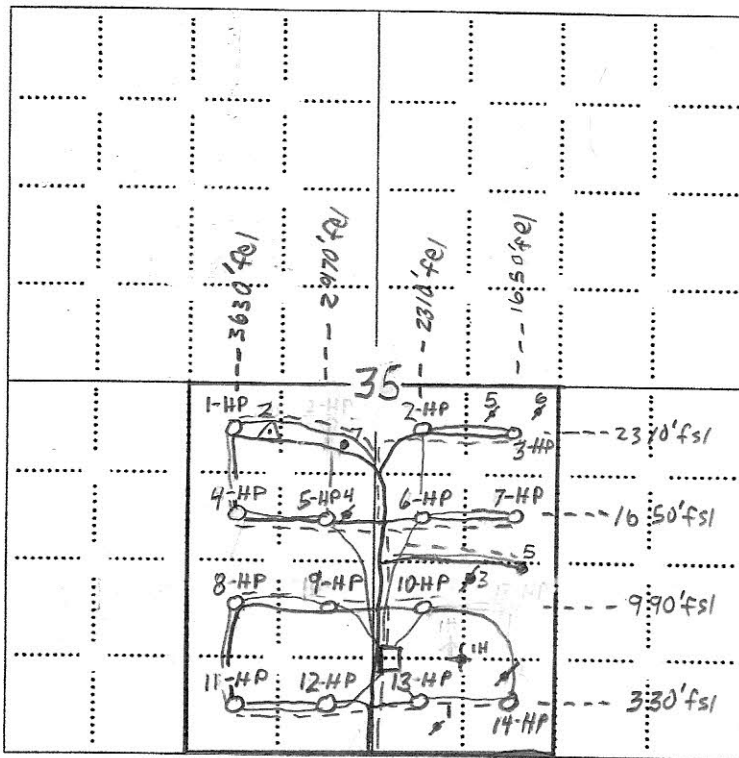 3630'fel
2970'fel
2310'fel
1650'fel
35
1-HP 2 2-HP 5 6
7 3-HP 2310'fsl
4-HP 5-HP4 6-HP 7-HP
1650'fsl
5
8-HP 9-HP 10-HP 3
990'fsl
1H
11-HP 12-HP 13-HP
1 14-HP 330'fsl